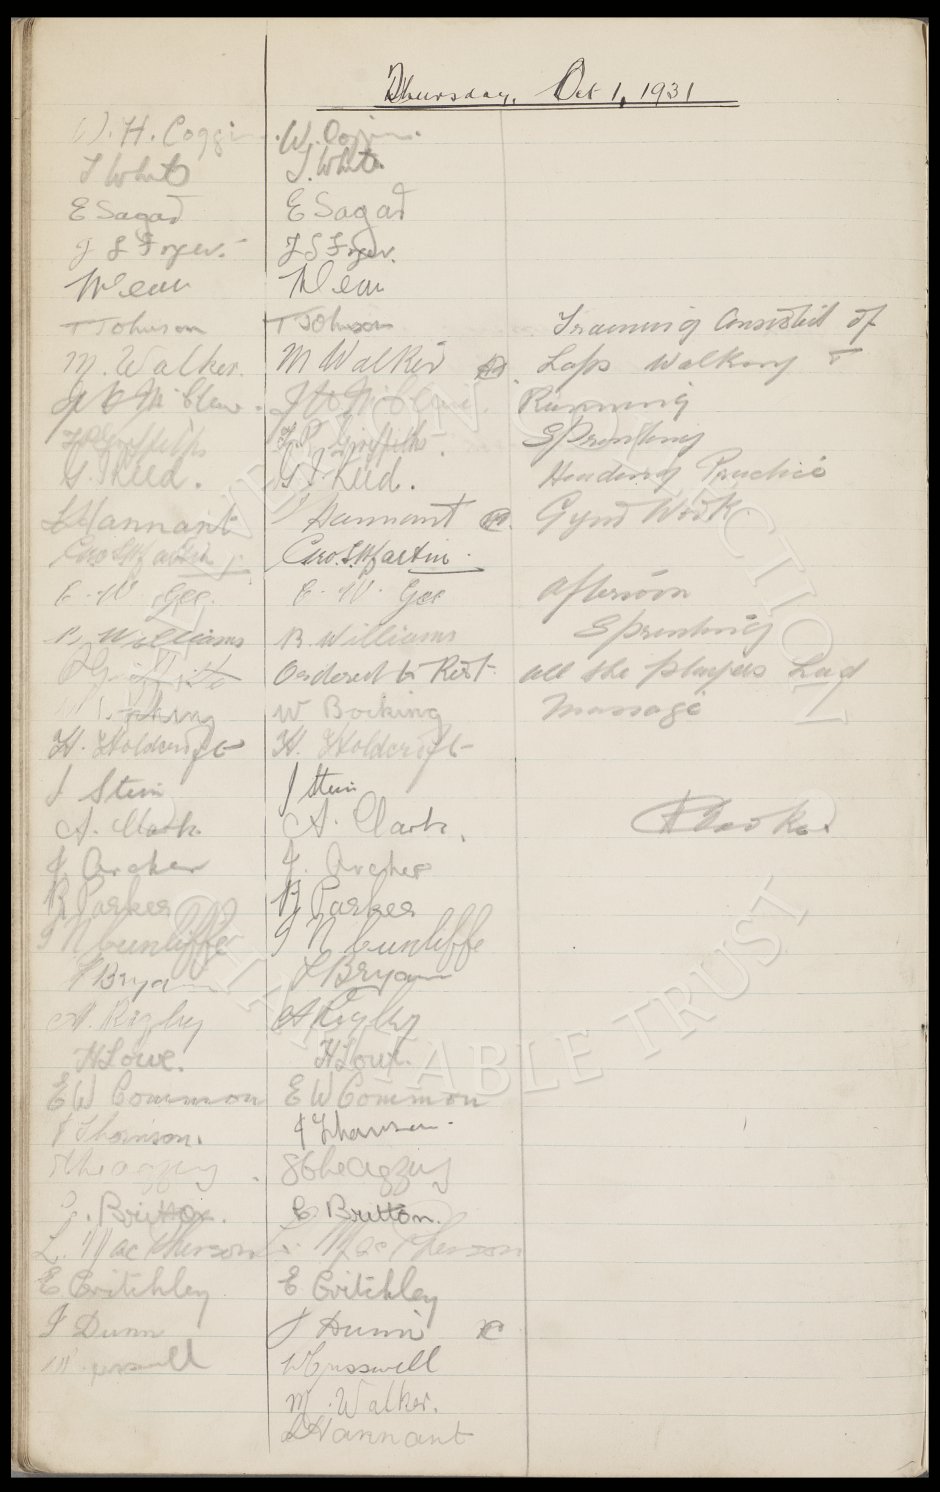 Thursday, Oct 1, 1931
W. H. Coggin W. Coggin.
T White T. White
E Sagar E Sagar
J S Fryer. J S Fryer.
W Dean W Dean
T Johnson T Johnson
Training Consisted of
M. Walker. M Walker
Laps Walking &
Running
T P Griffiths T. P. Griffiths.
Sprinting
G. T Reed. G T Reed.
Heading Practice
L Hannant Hannant
Gym Work.
Geo. S. Martin Geo. S. Martin.
E. W. Gee. E. W. Gee
Afternoon
B. Williams B. Williams
Sprinting
P Griffiths Ordered to Rest.
all the players had
W Bocking
Massage
H. Holdcroft H. Holdcroft
J Stein J Stein
A. Clark. A. Clark.
H Cooke.
J. Archer J. Archer
R Parker R Parker
J N Cunliffe J N Cunliffe
F Bryan F Bryan
A. Rigby A Rigby
H Lowe. H Lowe.
E W Common E W Common
J Thomson. J Thomson.
C. Britton. C Britton.
L. MacPherson L. MacPherson
E Critchley E Critchley
J Dunn J Dunn
W Cresswell W Cresswell
M. Walker.
L Hannant
EVERTON COLLECTION
CHARITABLE TRUST